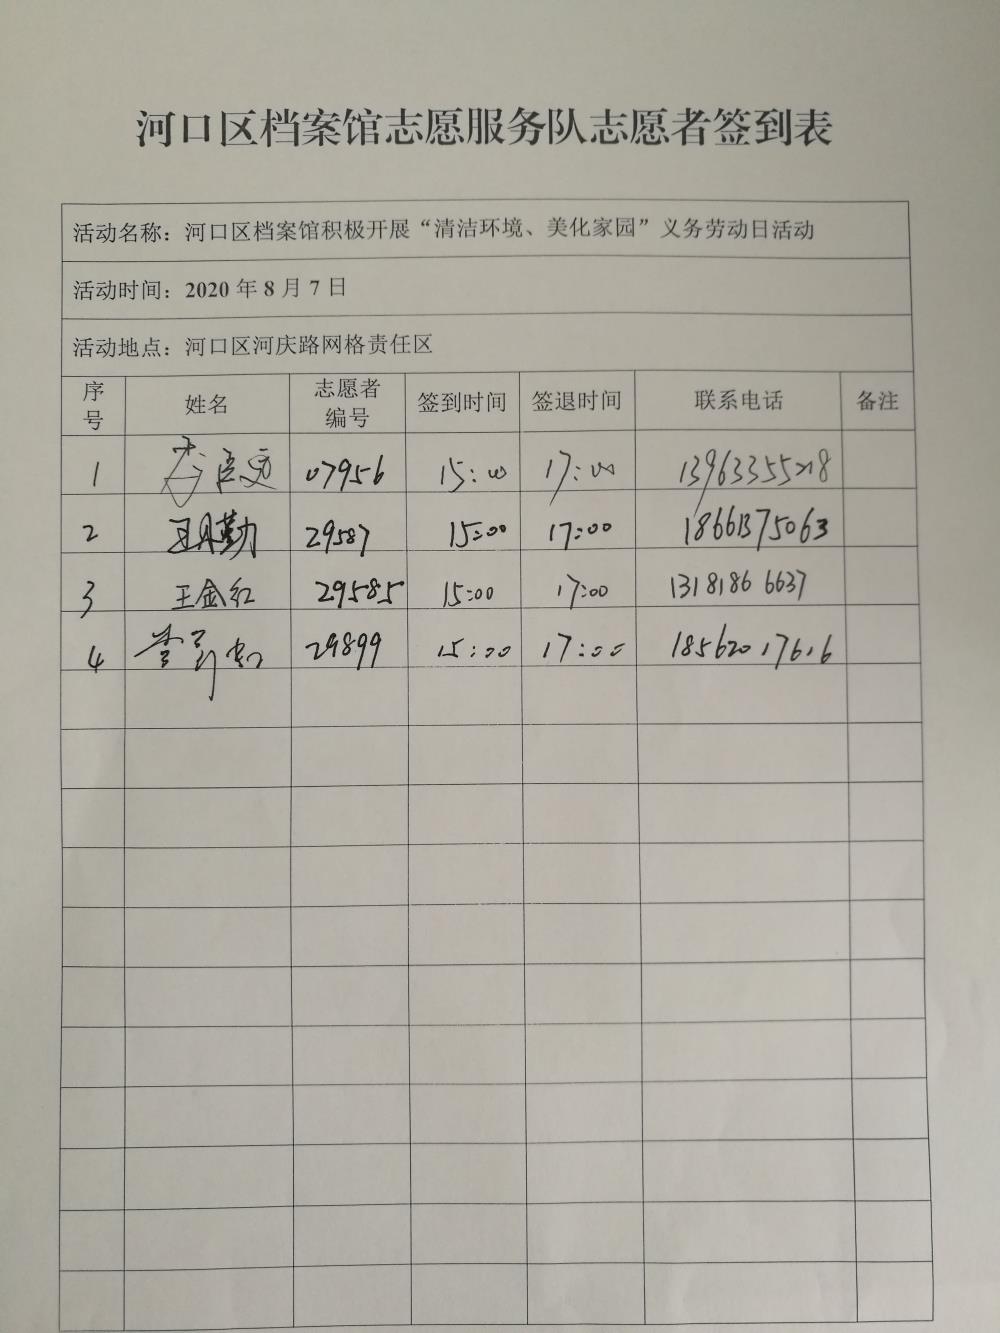 河口区档案馆志愿服务队志愿者签到表
活动名称：河口区档案馆积极开展“清洁环境、美化家园”义务劳动日活动
活动时间：2020 年 8 月 7 日
活动地点：河口区河庆路网格责任区
序号 姓名 志愿者编号 签到时间 签退时间 联系电话 备注
1 07956 15:00 17:00
2 29587 15:00 17:00 18661375063
3 王金红 29585 15:00 17:00 13181866637
4 29899 15:00 17:00 18562017616